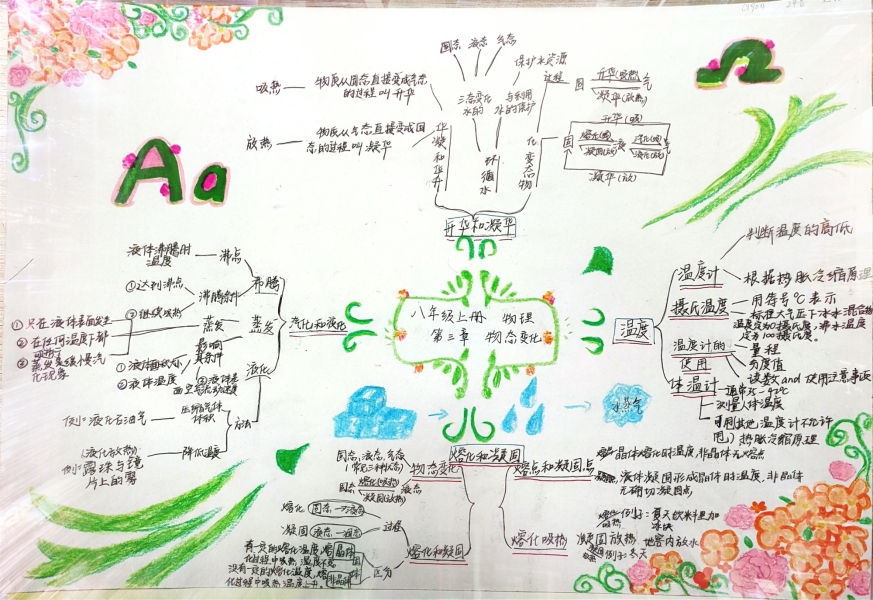 Aa
固态 液态 气态
保护水资源
吸热
物质从固态直接变成气态
的过程叫升华
放热
物质从气态直接变成固
态的过程叫凝华
三态变化
水的
与利用
水的保护
过程
固
升华(吸热)
气
凝华(放热)
升华(吸)
固
熔化(吸)
凝固(放)
液
汽化(吸)
液化(放)
气
凝华(放)
华凝和华升
环循水
化变态物
升华和凝华
八年级上册 物理
第三章 物态变化
液体沸腾时
温度
沸点
①达到沸点
②继续吸热
沸腾条件
沸腾
① 只在液体表面发生
② 在任何温度下都
③ 蒸发是缓慢汽
化现象
蒸发
影响
其条件
②液体温度
蒸发
汽化和液化
液化
例:液化石油气
压缩气体
体积
方法
(液化放热)
例:露珠与镜
片上的雾
降低温度
温度
温度计
判断温度的高低
根据热胀冷缩原理
摄氏温度
用符号℃表示
标准大气压下冰水混合物
温度定为0摄氏度,沸水温度
定为100摄氏度。
温度计的
使用
量程
分度值
读数and使用注意事项
体温计
通常35-42℃
测量人体温度
可用(其他温度计不允许
用) 热胀冷缩原理
水蒸气
熔化和凝固
固态、液态、气态
(常见三种状态)
固态
熔化(吸热)
凝固(放热)
液态
物态变化
熔化
固态→液态
凝固
液态→固态
过程
有一定的熔化温度,熔
化过程中吸热,温度不变
晶体
没有一定的熔化温度,熔
化过程中吸热温度上升
非晶体
固体
区分
熔化和凝固
熔点和凝固点
晶体熔化时温度,非晶体无熔点
液体凝固形成晶体时温度,非晶体
无确切凝固点
熔化吸热
例子:夏天饮料里加
冰块
凝固放热
地窖内放水
例子:冬天